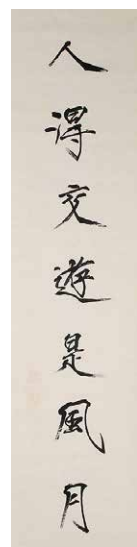 人得交遊是風月